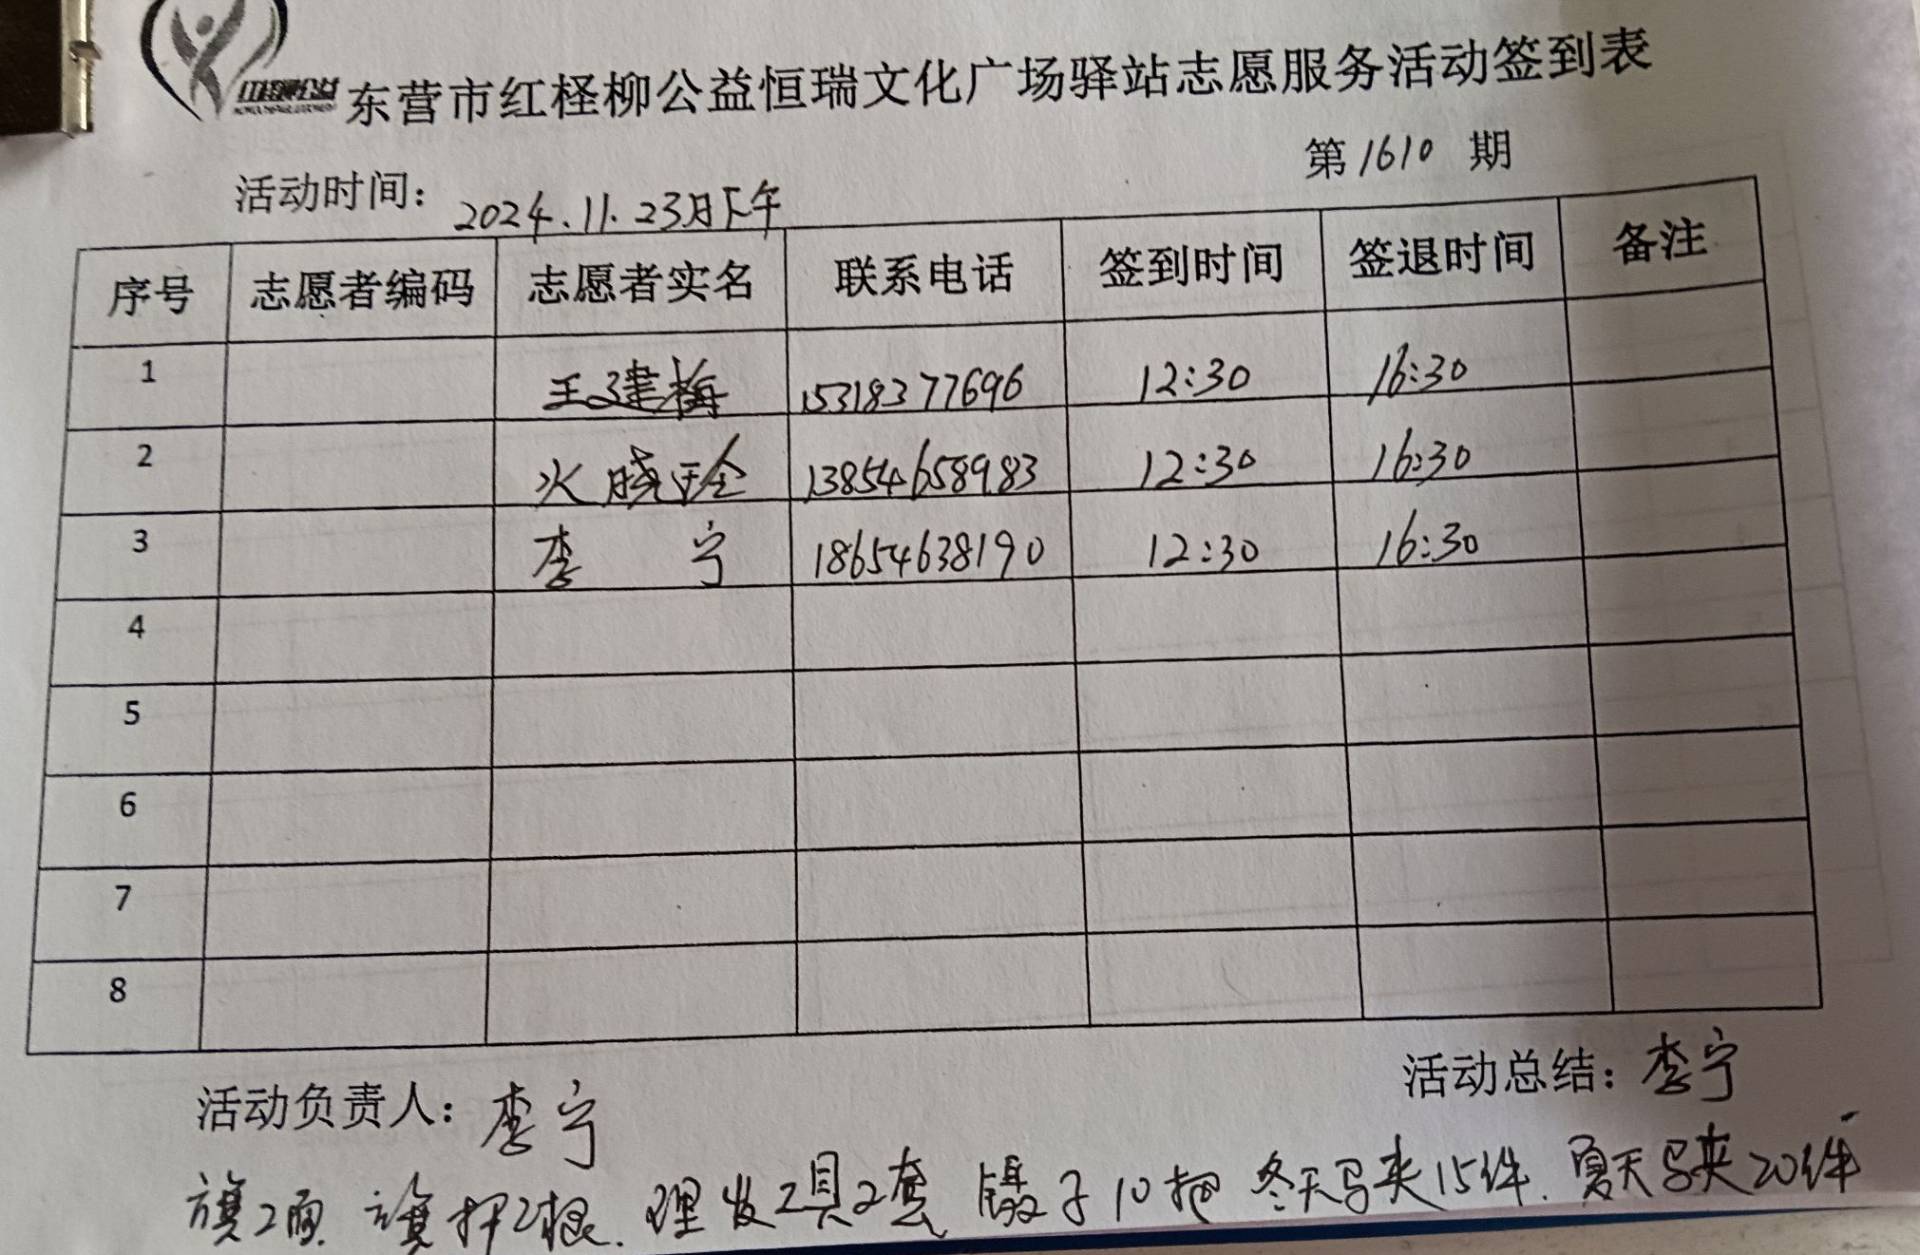 东营市红柽柳公益恒瑞文化广场驿站志愿服务活动签到表
第1610 期
活动时间：2024.11.23日下午
序号 志愿者编码 志愿者实名 联系电话 签到时间 签退时间 备注
1 王建梅 15318377696 12:30 16:30
2 火晓玲 13854658983 12:30 16:30
3 李宁 18654638190 12:30 16:30
4
5
6
7
8
活动负责人：李宁 活动总结：李宁
旗2面 旗杆2根. 理发工具2套 镊子10把 冬天马夹15件. 夏天马夹20件